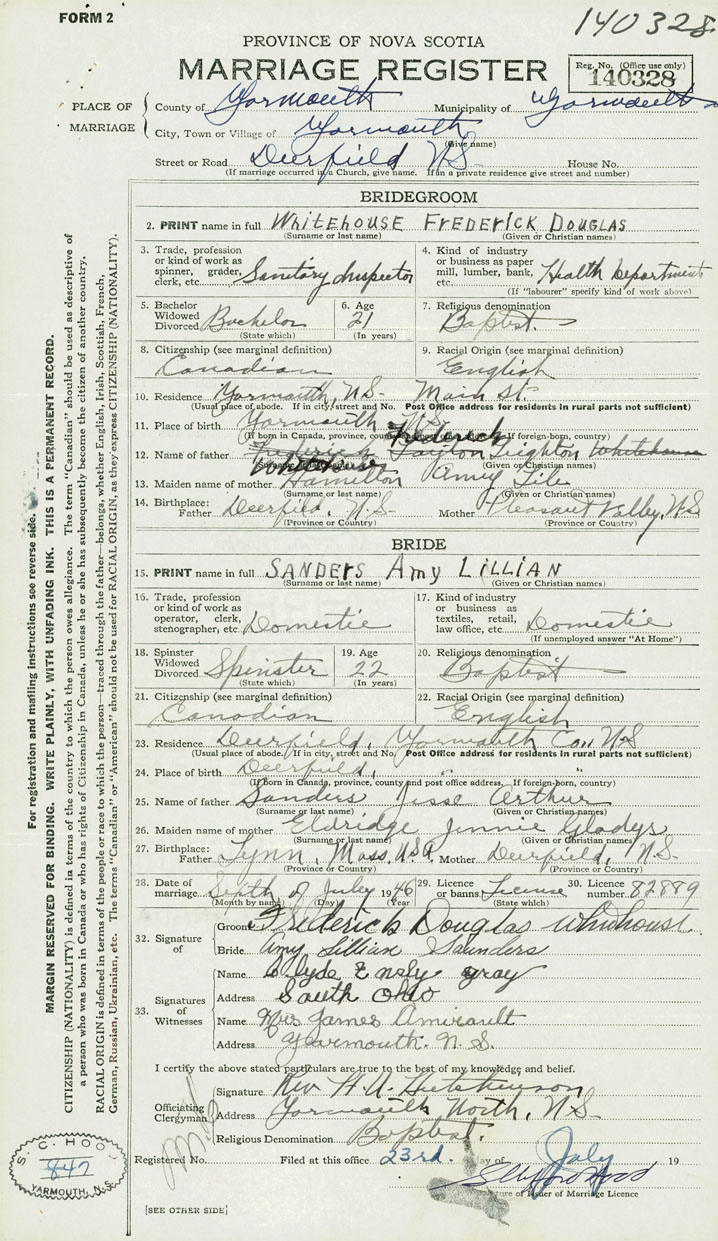 FORM 2
140328
PROVINCE OF NOVA SCOTIA
MARRIAGE REGISTER
Reg. No. (Office use only)
140328
PLACE OF MARRIAGE
County of Yarmouth Municipality of Yarmouth
City, Town or Village of Yarmouth
(Give name)
Street or Road Deerfield N.S. House No.
(If marriage occurred in a Church, give name. If in a private residence give street and number)
BRIDEGROOM
2. PRINT name in full WHITEHOUSE FREDERICK DOUGLAS
(Surname or last name) (Given or Christian names)
3. Trade, profession or kind of work as spinner, grader, clerk, etc. Sanitory Inspector
4. Kind of industry or business as paper mill, lumber, bank, etc. Health Department
(If "labourer" specify kind of work above)
5. Bachelor Widowed Divorced Bachelor
(State which)
6. Age 21
(In years)
7. Religious denomination Baptist.
8. Citizenship (see marginal definition) Canadian
9. Racial Origin (see marginal definition) English
10. Residence Yarmouth, N.S. Main St.
(Usual place of abode. If in city, street and No. Post Office address for residents in rural parts not sufficient)
11. Place of birth Yarmouth N.S.
(If born in Canada, province, county and post office address. If foreign-born, country)
12. Name of father Frederick Layton Leighton Whitehouse
(Surname or last name) (Given or Christian names)
13. Maiden name of mother Hamilton Amy
(Surname or last name) (Given or Christian names)
14. Birthplace: Father Deerfield, N.S. Mother Pleasant Valley, N.S.
(Province or Country) (Province or Country)
BRIDE
15. PRINT name in full SANDERS Amy LILLIAN
(Surname or last name) (Given or Christian names)
16. Trade, profession or kind of work as operator, clerk, stenographer, etc. Domestic
17. Kind of industry or business as textiles, retail, law office, etc. Domestic
(If unemployed answer "At Home")
18. Spinster Widowed Divorced Spinster
(State which)
19. Age 22
(In years)
20. Religious denomination Baptist
21. Citizenship (see marginal definition) Canadian
22. Racial Origin (see marginal definition) English
23. Residence Deerfield, Yarmouth Co., N.S
(Usual place of abode. If in city, street and No. Post Office address for residents in rural parts not sufficient)
24. Place of birth Deerfield, " "
(If born in Canada, province, county and post office address. If foreign-born, country)
25. Name of father Sanders Jesse Arthur
(Surname or last name) (Given or Christian names)
26. Maiden name of mother Eldridge Jennie Gladys
(Surname or last name) (Given or Christian names)
27. Birthplace: Father Lynn, Mass. U.S.A. Mother Deerfield, N.S.
(Province or Country) (Province or Country)
28. Date of marriage of July 1946
(Month by name) (Day) (Year)
29. Licence or banns License
(State which)
30. Licence number 82889
32. Signature of
Groom Frederick Douglas Whithouse
Bride Amy Lillian Saunders
33. Signatures of Witnesses
Name Clyde gray
Address South Ohio
Name Mrs James Amirault
Address Yarmouth. N. S.
I certify the above stated particulars are true to the best of my knowledge and belief.
Officiating Clergyman
Signature Rev. H. A. Hutchinson
Address Yarmouth North, N.S.
Religious Denomination Baptist.
Registered No. Filed at this office 23rd. day of July 19
Signature of Issuer of Marriage Licence
[SEE OTHER SIDE]
For registration and mailing instructions see reverse side.
MARGIN RESERVED FOR BINDING. WRITE PLAINLY, WITH UNFADING INK. THIS IS A PERMANENT RECORD.
CITIZENSHIP (NATIONALITY) is defined in terms of the country to which the person owes allegiance. The term "Canadian" should be used as descriptive of
a person who was born in Canada or who has rights of Citizenship in Canada, unless he or she has subsequently become the citizen of another country.
RACIAL ORIGIN is defined in terms of the people or race to which the person—traced through the father—belongs, whether English, Irish, Scottish, French,
German, Russian, Ukrainian, etc. The terms "Canadian" or "American" should not be used for RACIAL ORIGIN, as they express CITIZENSHIP (NATIONALITY).
S. C. HOOD
847
YARMOUTH, N.S.